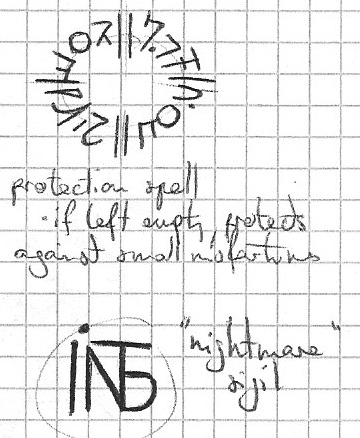 protection spell
· if left empty, protects
against small misfortunes
"nightmare"
sigil